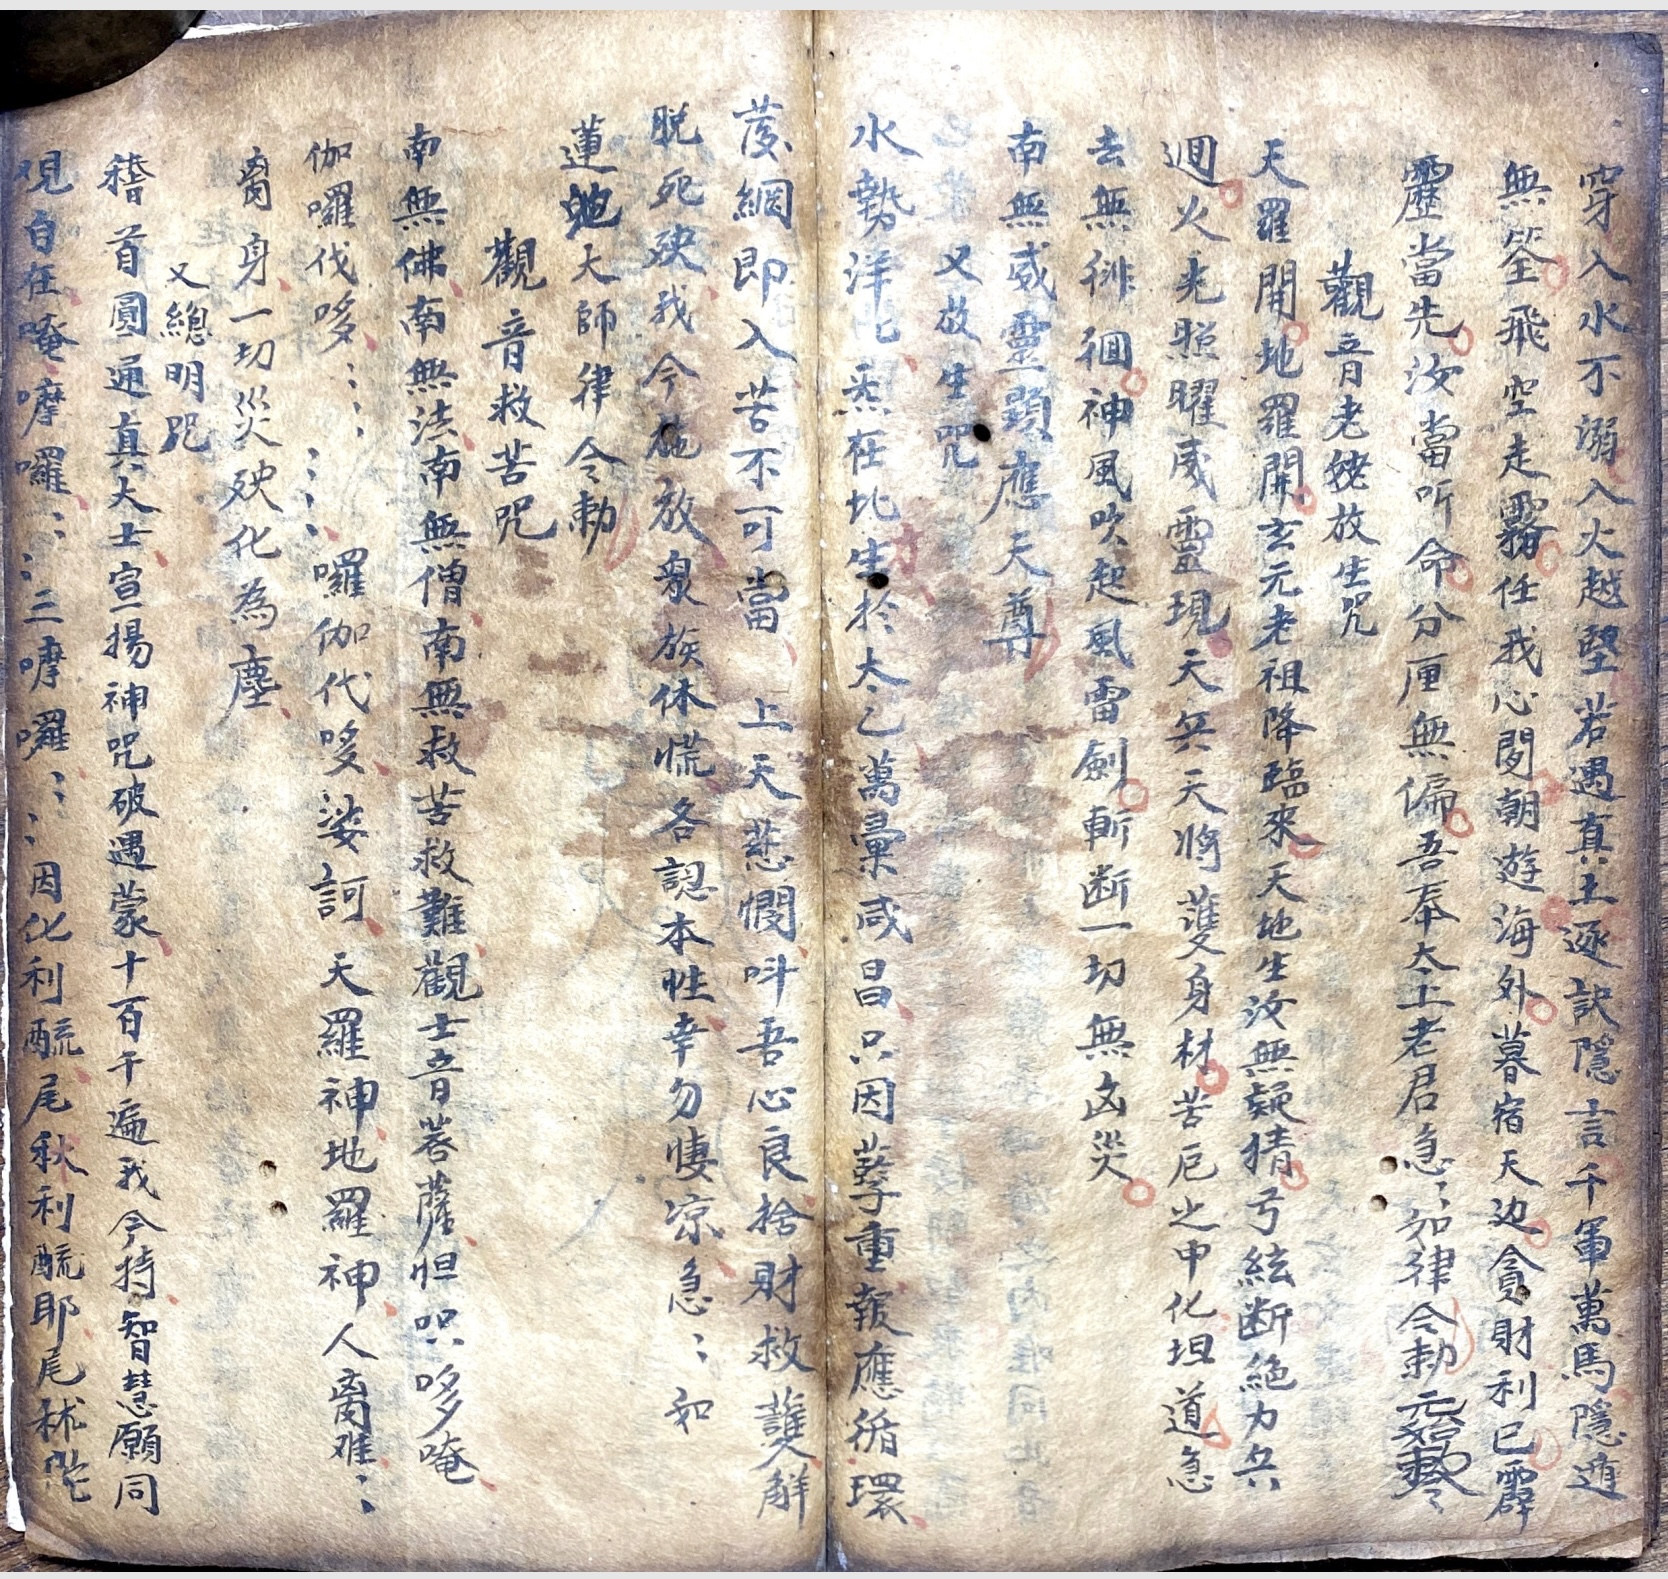 穿入水不溺入火越堅若遇真土逐訣隱言千軍萬馬隱遁
無筌飛空走霧任我心閒朝遊海外暮宿天边貪財利己霹
靂當先汝當听命分厘無偏吾奉太上老君急〻如律令勅
觀音老姥放生咒
天羅開地羅開玄元老祖降臨來天地生汝無疑猜弓絃断絶力兵
迴火光照曜威靈現天兵天將護身材苦厄之中化坦道急
去無徘徊神風吹起風雷劍斬断一切無凶災
南無威靈顕應天尊
又放生咒
水勢洋比炁在比生於太乙萬彙咸昌只因孽重報應循環
莈網即入苦不可當 上天慈憫吽吾心良捨財救護解
脱死殃我今施放衆族休慌各認本性幸勿悽凉急〻如
蓮池大師律令勅
觀音救苦咒
南無佛南無法南無僧南無救苦救難觀士音菩薩怛只哆唵
伽囉伐哆〻〻〻〻〻囉伽代哆娑訶天羅神地羅神人离难〻〻
离身一切災殃化為塵
又總明咒
稽首圓通真大士宣揚神咒破遇蒙十百千遍我今持智慧願同
現自在唵嚤囉〻〻三嚤囉〻〻因化利酼尾秋利酼耶尾秫